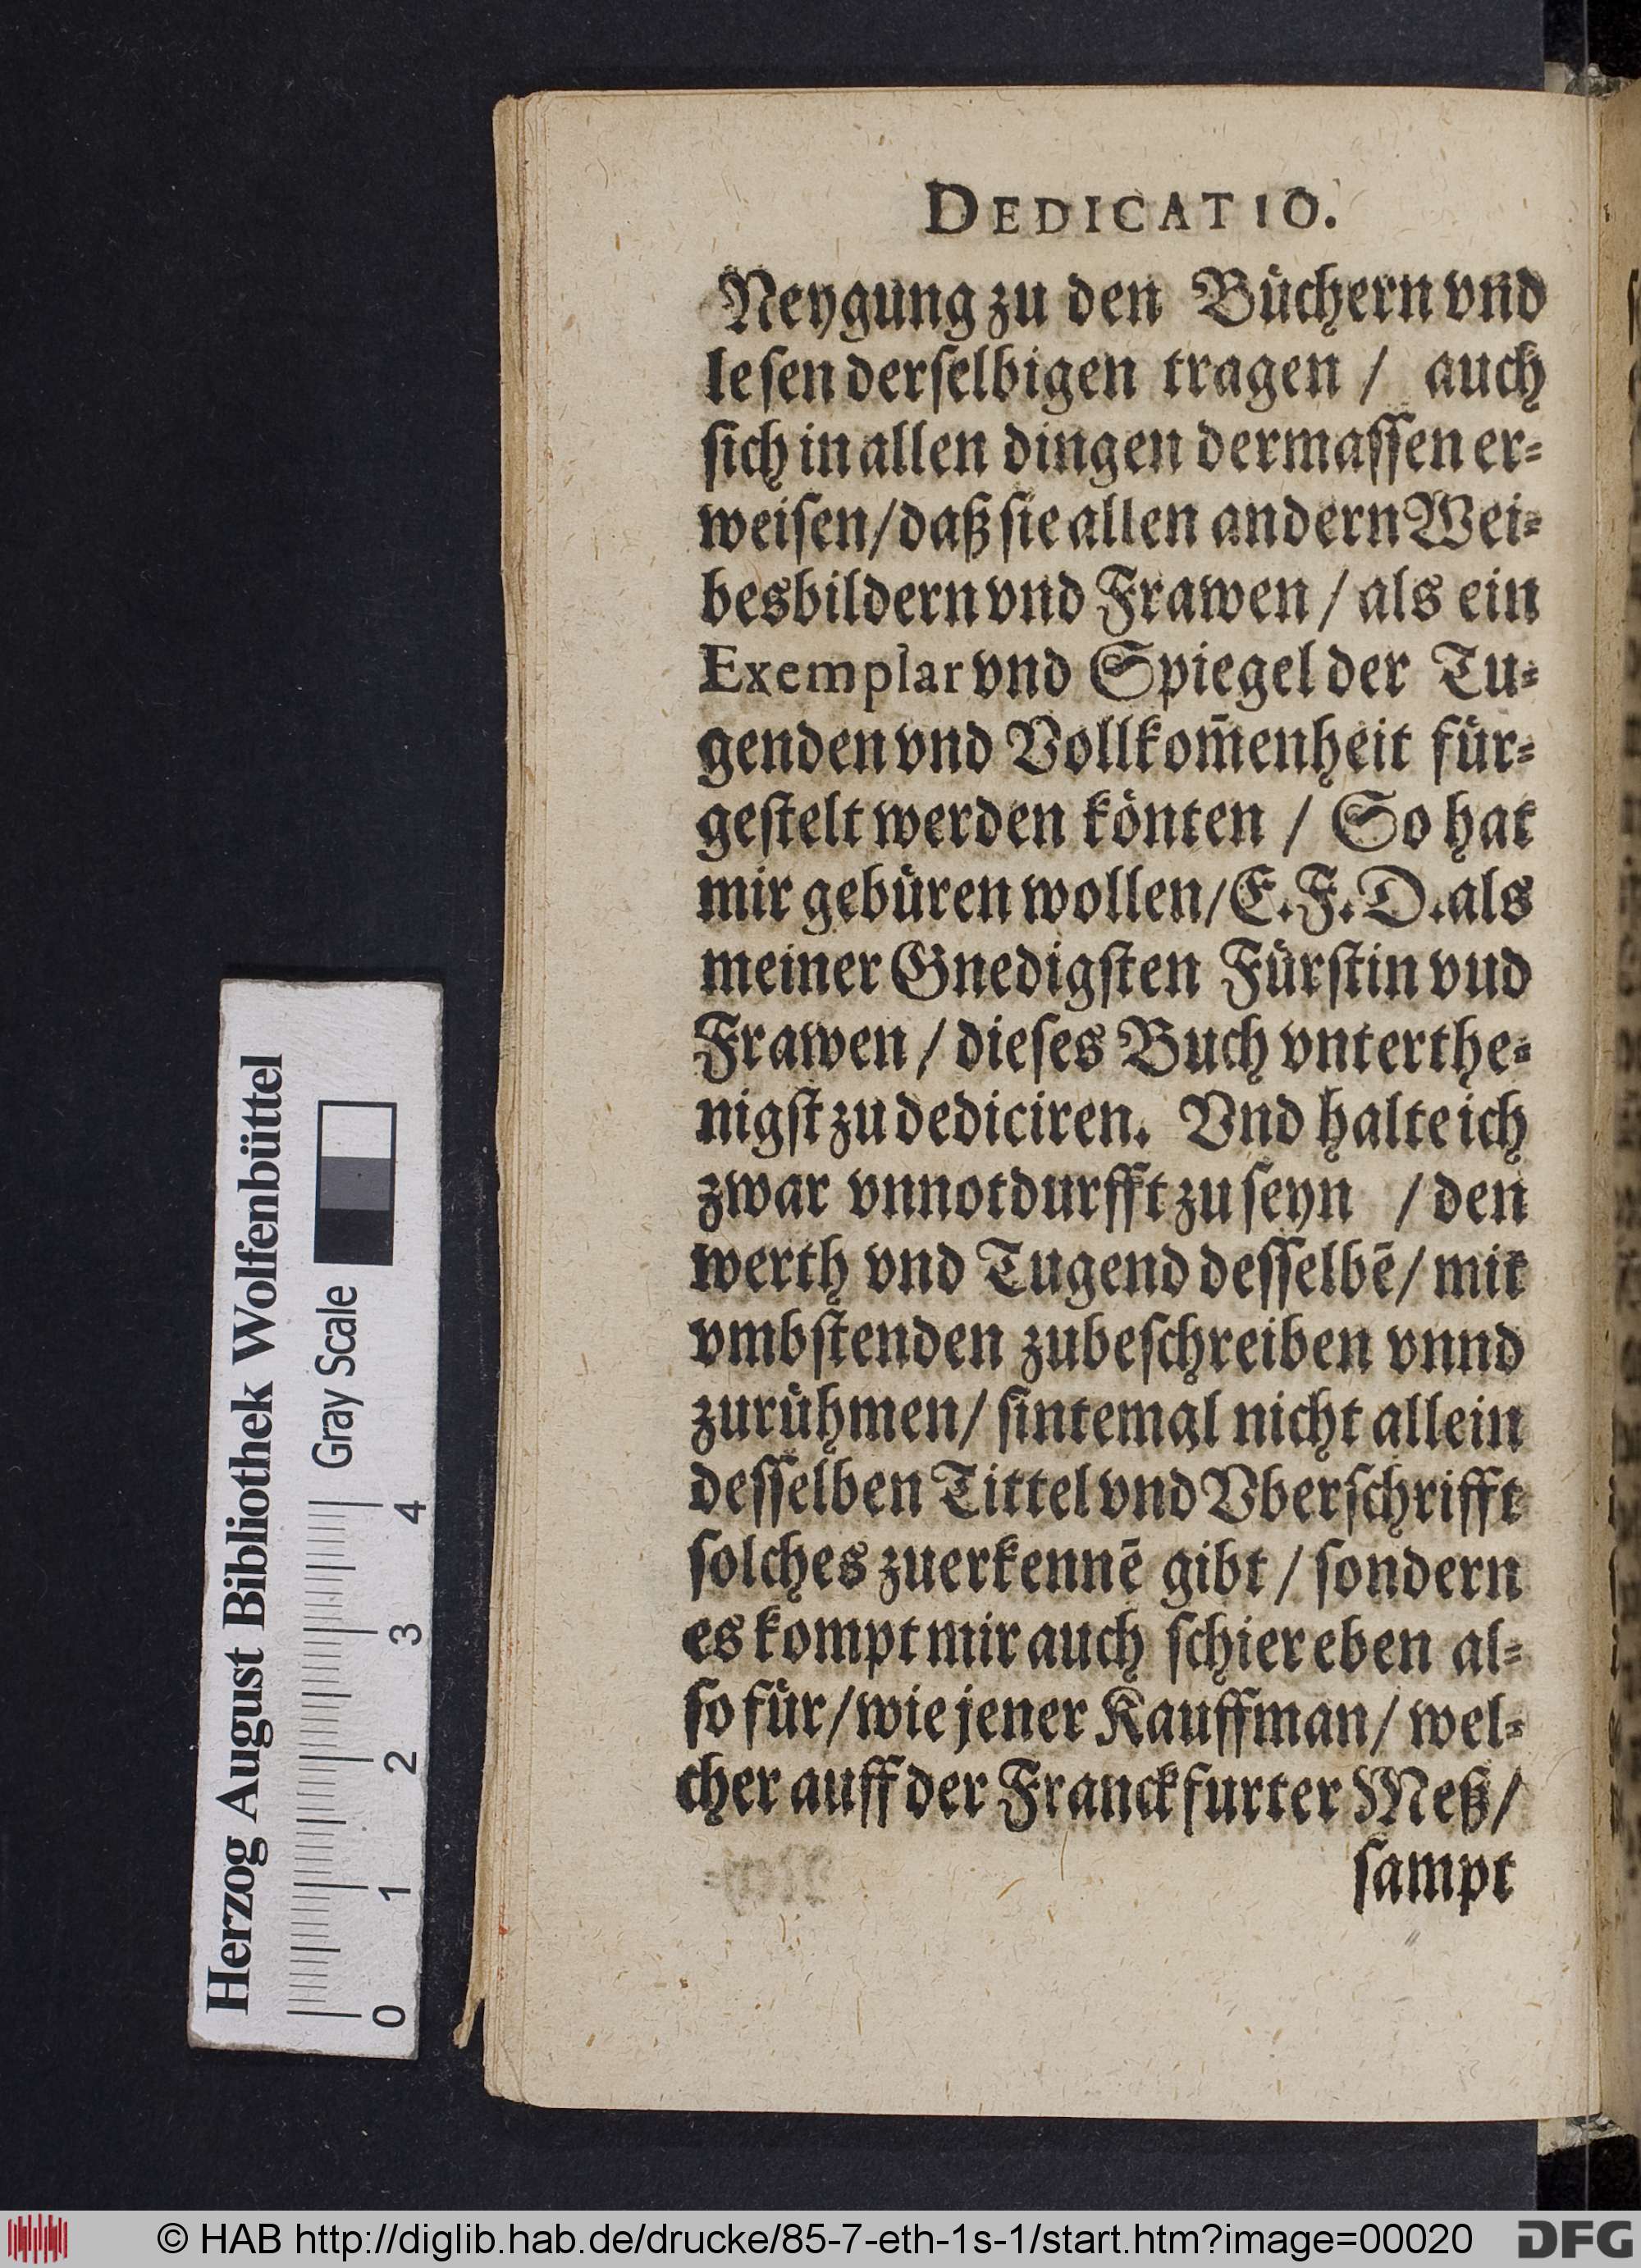 DEDICATIO.
Neygung zu den Büchern vnd
leſen derſelbigen tragen / auch
ſich in allen dingen dermaſſen er⸗
weiſen/daß ſie allen andern Wei⸗
besbildern vnd Frawen / als ein
Exemplar vnd Spiegel der Tu⸗
genden vnd Vollkom̃enheit für⸗
geſtelt werden könten / So hat
mir gebüren wollen/E.F.D.als
meiner Gnedigſten Fürſtin vud
Frawen / dieſes Buch vnterthe⸗
nigſt zu dediciren. Vnd halte ich
zwar vnnotdurfft zu ſeyn / den
werth vnd Tugend deſſelbē/ mit
vmbſtenden zubeſchreiben vnnd
zurühmen/ ſintemal nicht allein
deſſelben Tittel vnd Vberſchrifft
ſolches zuerkennē gibt / ſondern
es kompt mir auch ſchier eben al⸗
ſo für/wie jener Kauffman/ wel⸗
cher auff der Franckfurter Meß/
ſampt
Herzog August Bibliothek Wolfenbüttel
Gray Scale
0 1 2 3 4
© HAB http://diglib.hab.de/drucke/85-7-eth-1s-1/start.htm?image=00020
DFG